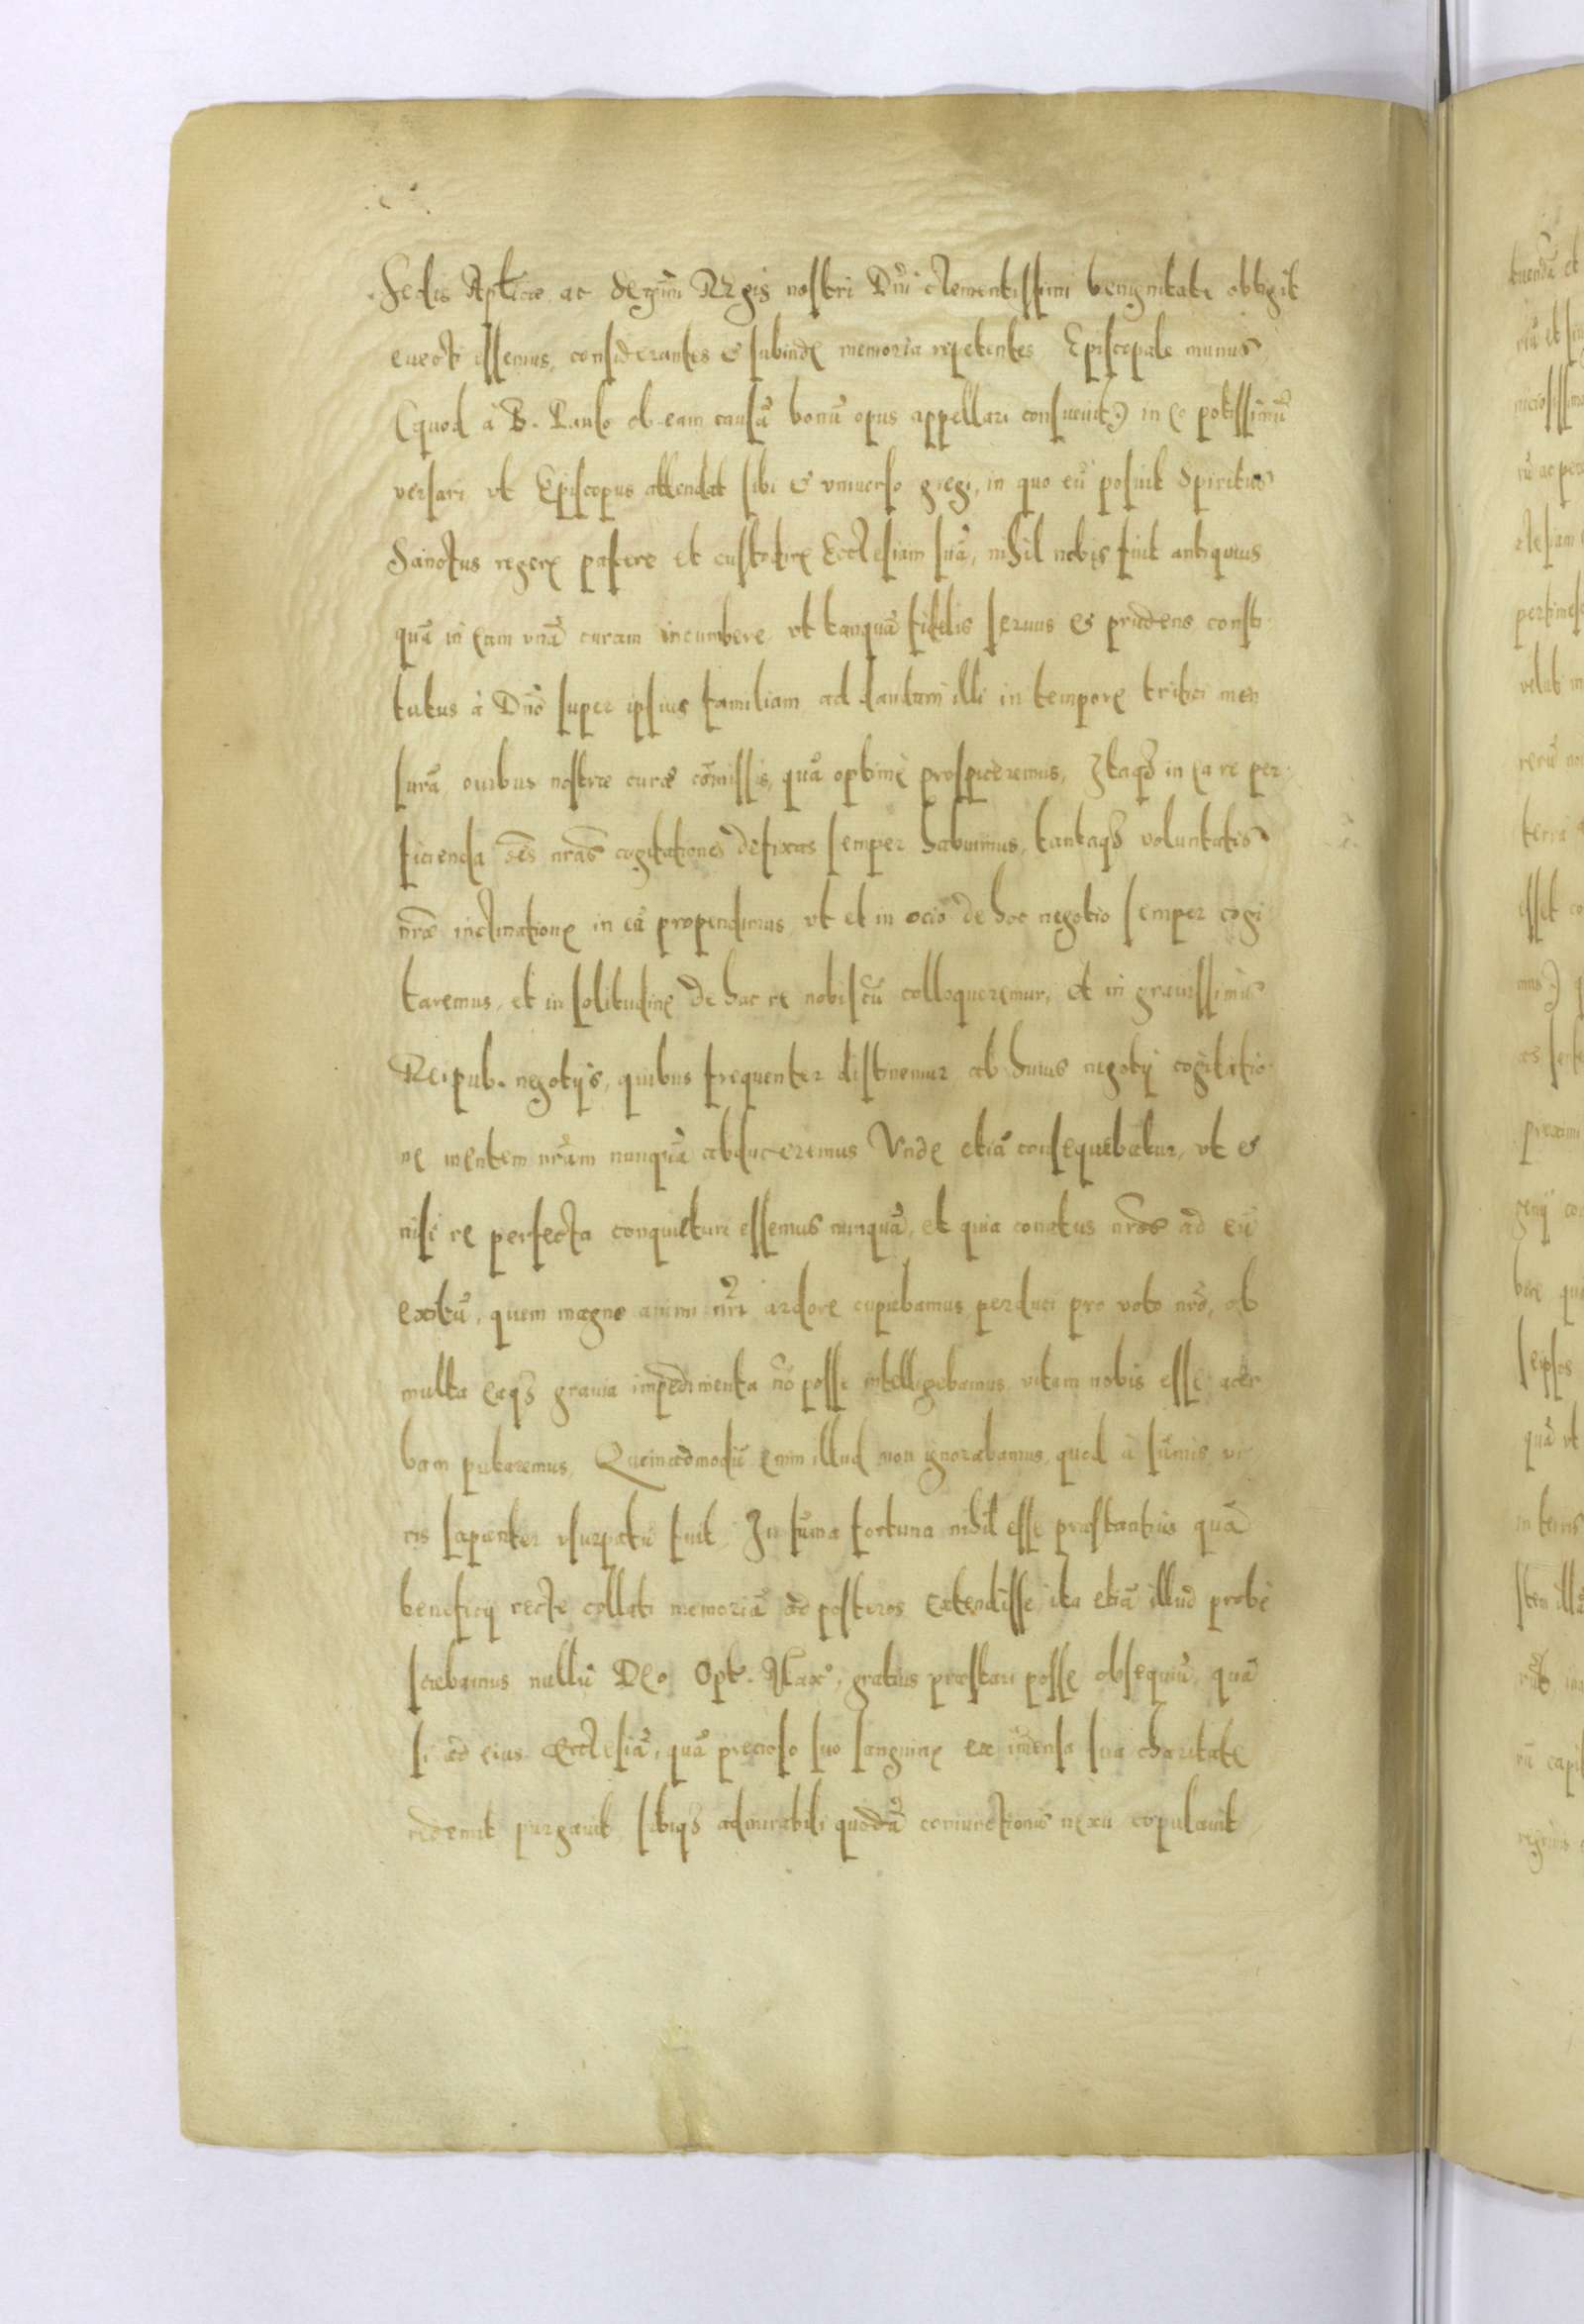 Sedis Aplicæ ac Sereniſſ Regis noſtri Dñi clementiſſimi benignitate obtigit
euecti eſſemus, conſiderantes & ſubinde memoria repetentes Epiſcopale munus
(quod à B. Paulo ob eam cauſã bonũ opus appellari conſueuit) in eo potiſſimũ
verſari vt Epiſcopus attendat ſibi & vniuerſo gregi, in quo eũ poſuit Spiritus
Sanctus regere paſcere et cuſtodire Eccleſiam ſuã, nihil nobis fuit antiquius
quã in eam vnã curam incumbere vt tanquã fidelis ſeruus & prudens conſti
tutus à Dño ſuper ipſius familiam ad dandam illi in tempore tritici men
ſurã ouibus noſtræ curæ cõmiſſis, quã optimè proſpiceremus, Itaq in ea re per
ficienda oẽs nrãs cogitationes defixas ſemper habuimus, tantaq voluntatis
nrãe inclinatione in eã propendimus vt et in ocio de hoc negotio ſemper cogi
taremus, et in ſolitudine de hac re nobiſcũ colloqueremur, et in grauiſſimis
Reipub. negotijs, quibus frequenter diſtinemur ab huius negotij cogitatio
ne mentem nrãm nunquã abduceremus Vnde etiã conſequebatur, vt &
niſi re perfecta conquieturi eſſemus nunquã, et quia conatus nrõs ad eũ
exitũ, quem magno animi nrĩ ardore cupiebamus perduci pro voto nrõ, ob
multa eaq grauia impedimenta nõ poſſe intelligebamus vitam nobis eſſe acer
bam putaremus, Quemadmodũ enim illud non ignorabamus, quod à ſũmis vi
ris ſapienter vſurpatũ fuit In ſũma fortuna nihil eſſe præſtantius quã
beneficij recte collati memoriã ad poſteros extendiſſe, ita etiã illud probè
ſciebamus nullũ Deo Opt. Max, gratius præſtari poſſe obſequiũ, quã
ſi ad eius Eccleſiã, quã precioſo ſuo ſanguine ex imẽnſa ſua charitate
redemit purgauit ſibiq admirabili quodã coniunctionis nexu copulauit